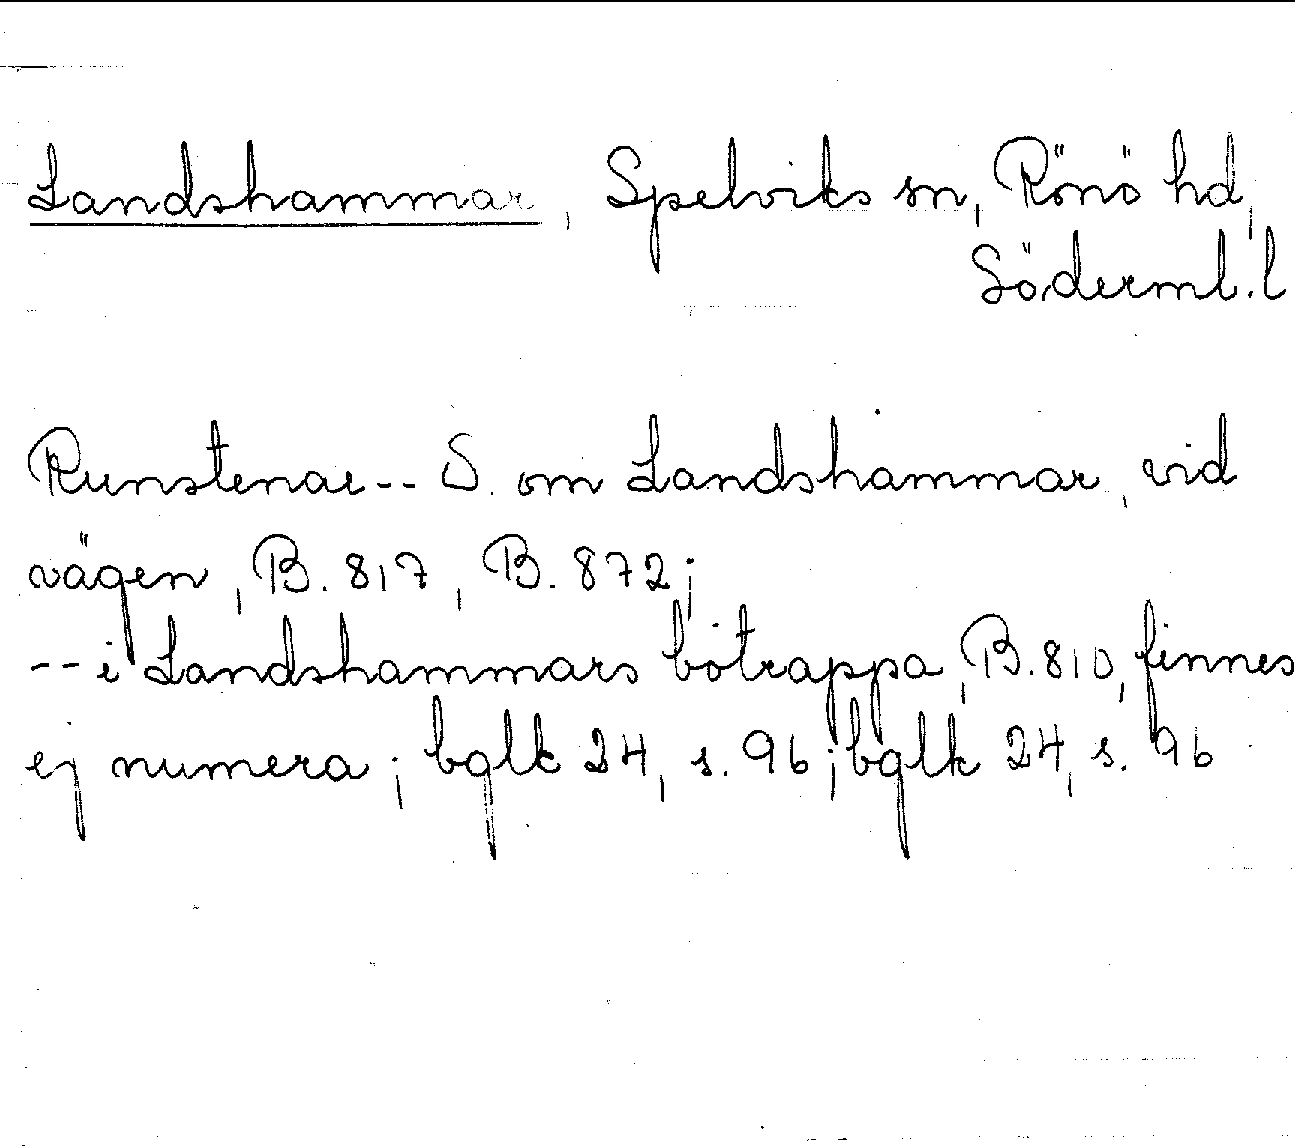 Landshammar, Spelviks sn, Rönö hd,
Söderml. l
Runstenar -- S. om Landshammar, vid
vägen, B. 817, B. 872;
-- i Landshammars botrappa, B. 810, finnes
ej numera; bglk 24, s. 96; bglk 24, s. 96